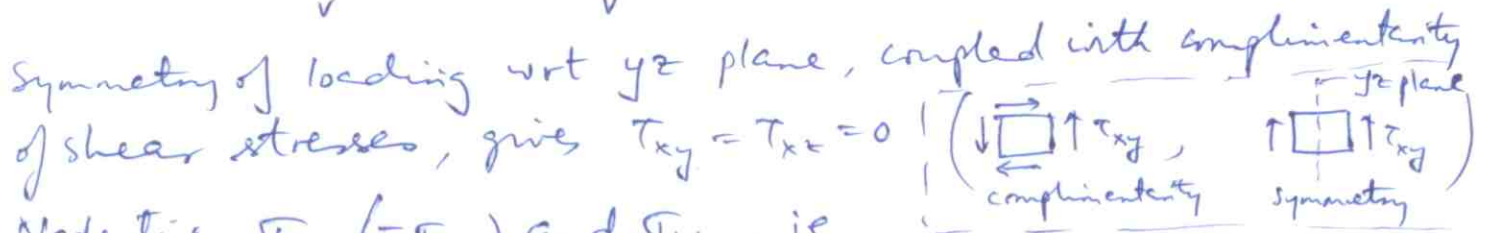 symmetry of loading wrt yz plane, coupled with complimentarity
of shear stresses, gives τxy = τxz = 0 ( τxy , τxy yz plane )
complimentarity symmetry